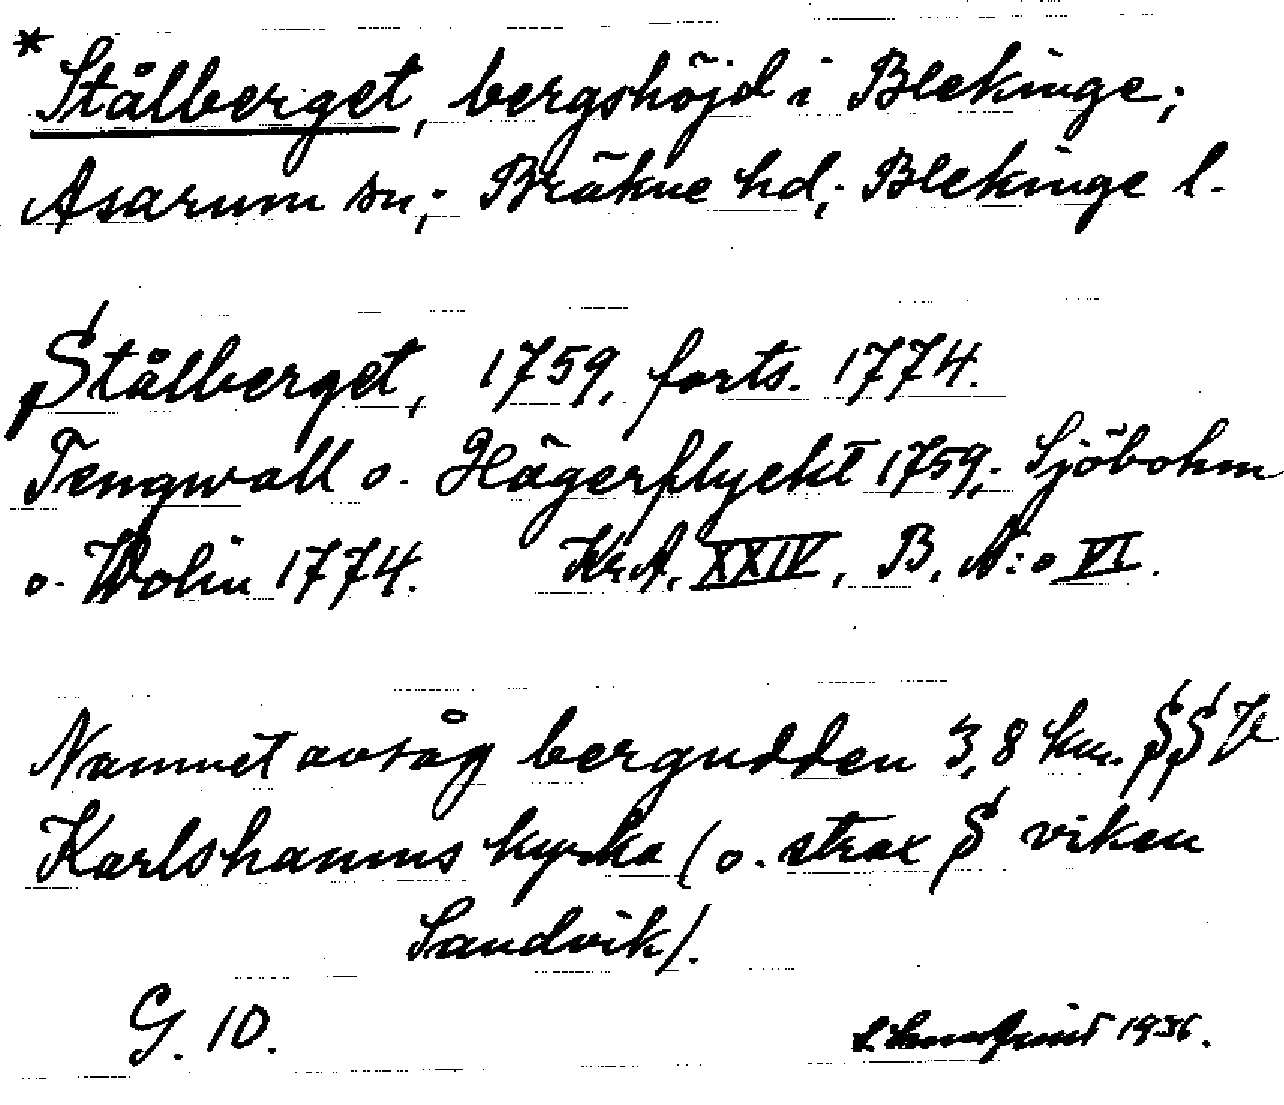 * Stålberget, bergshöjd i Blekinge;
Asarum sn; Bräkne hd; Blekinge l.
Stålberget, 1759, forts. 1774.
Tengwall o. Hägerflycht 1759; Sjöbohm
o. Wolin 1774. Kr.A. XXIV, B. N:o VI.
Namnet avsåg bergudden 3,8 km. SSV
Karlshamns kyrka (o. strax S viken
Sandvik).
G. 10. 1936.